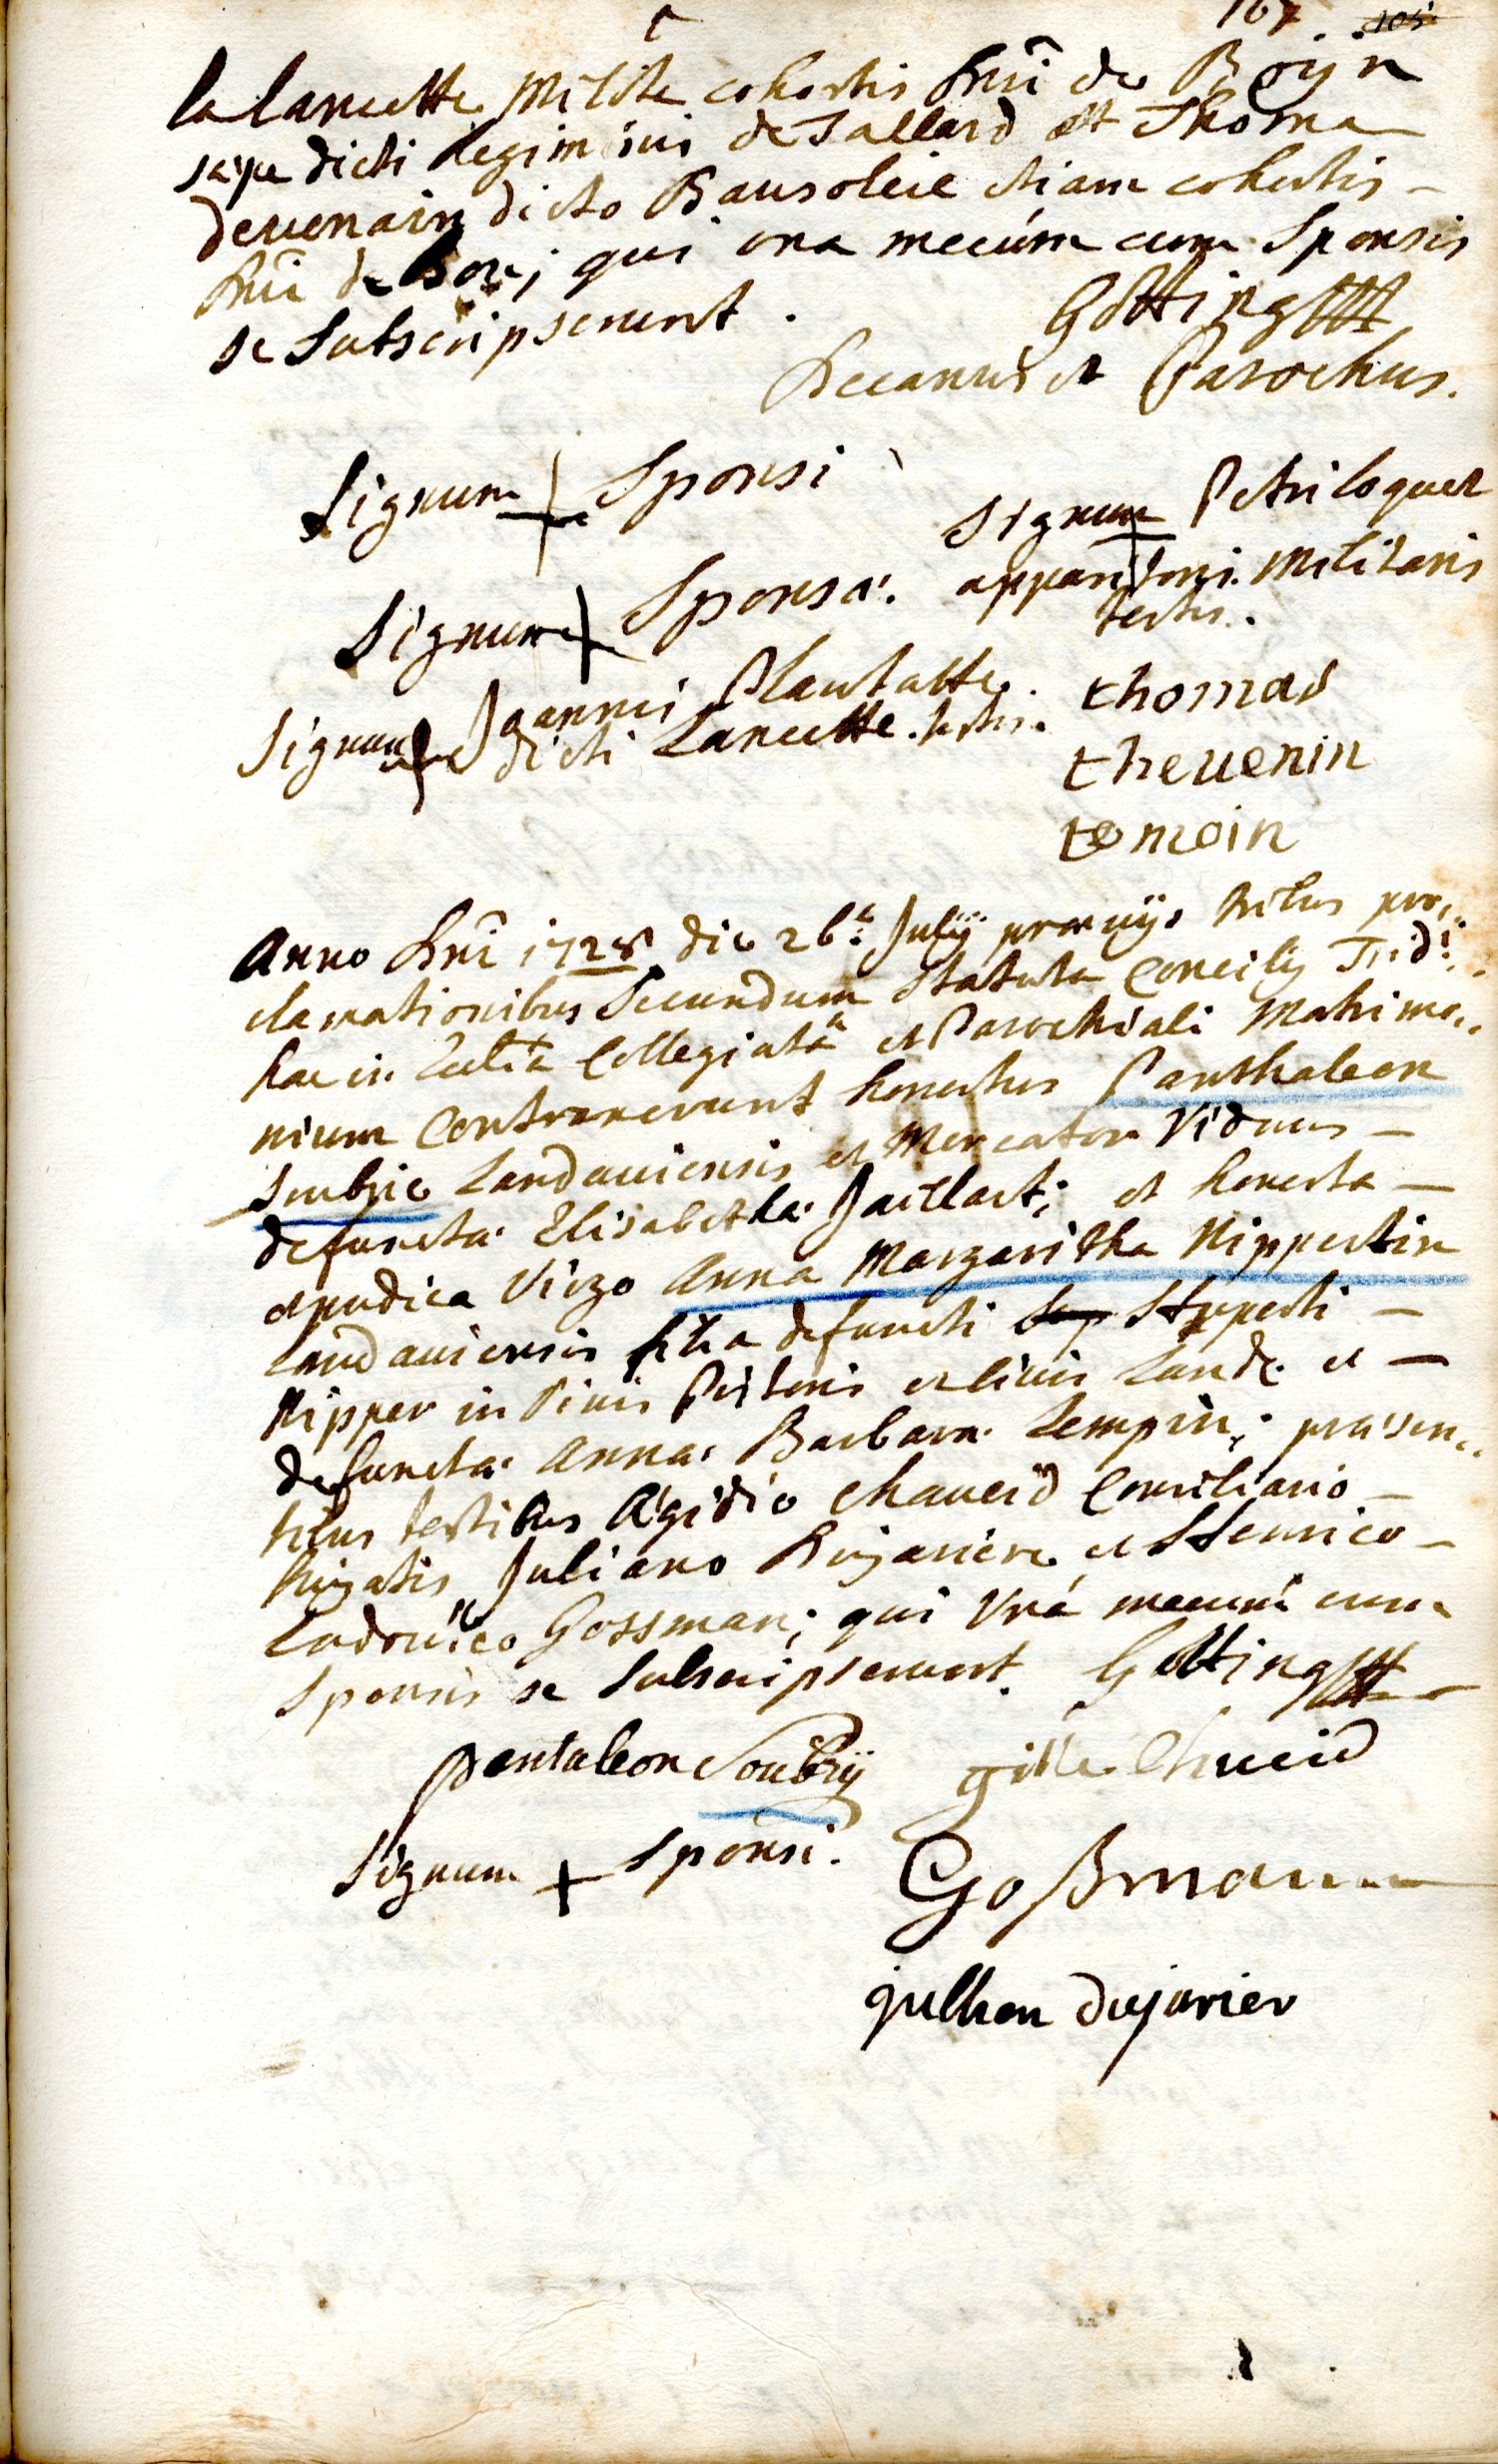 167 105
la lancette Milite cohortis Dni de Boijn
sæpe dicti Regiminis de Tallard et Thoma
devenain dicto Bausoleie etiam cohortis –
Dni de Bon; qui una mecúm cum Sponsis
se Subscripserunt.
Götting
Decanus et Parochus.
Signum + Sponsi
Signum + Petri loquet
apparitoris Militaris
testis.
Signum + Sponsæ.
Signum + Joannis Plantatte
dicti Lancette testis.
thomas
thevenin
temoin
Anno Dni 1728 die 26ᵗᵃ Julÿ præviÿs tribus pro,,
clamationibus Secundum Statuta Concilÿ Trid:
hac in Eccliâ Collegiatâ et Parochiali Matrimo,,
nium Contraxerunt honestus Panthaleon
Soubrie Landaviensis et Mercator Viduus –
defunctæ Elisabethæ Jaillart; et honesta –
et pudica Virgo Anna Margaritha Nippertin
Landaviensis filia defuncti Rupperti –
Nipper in Vivis Pistoris et Civis Land. et –
defunctæ Annæ Barbaræ Lempin; præsen,,
tibus testibus Ægidio Chaveid Consiliario –
Juliano Dujariere et Henrico –
Ludovico Gossman; qui Vná mecum cum
Sponsis se Subscripserunt. Götting
pentaleon Soubrÿ
gille Chveid
Signum + Sponsi.
Goßmann
jullien dujarier